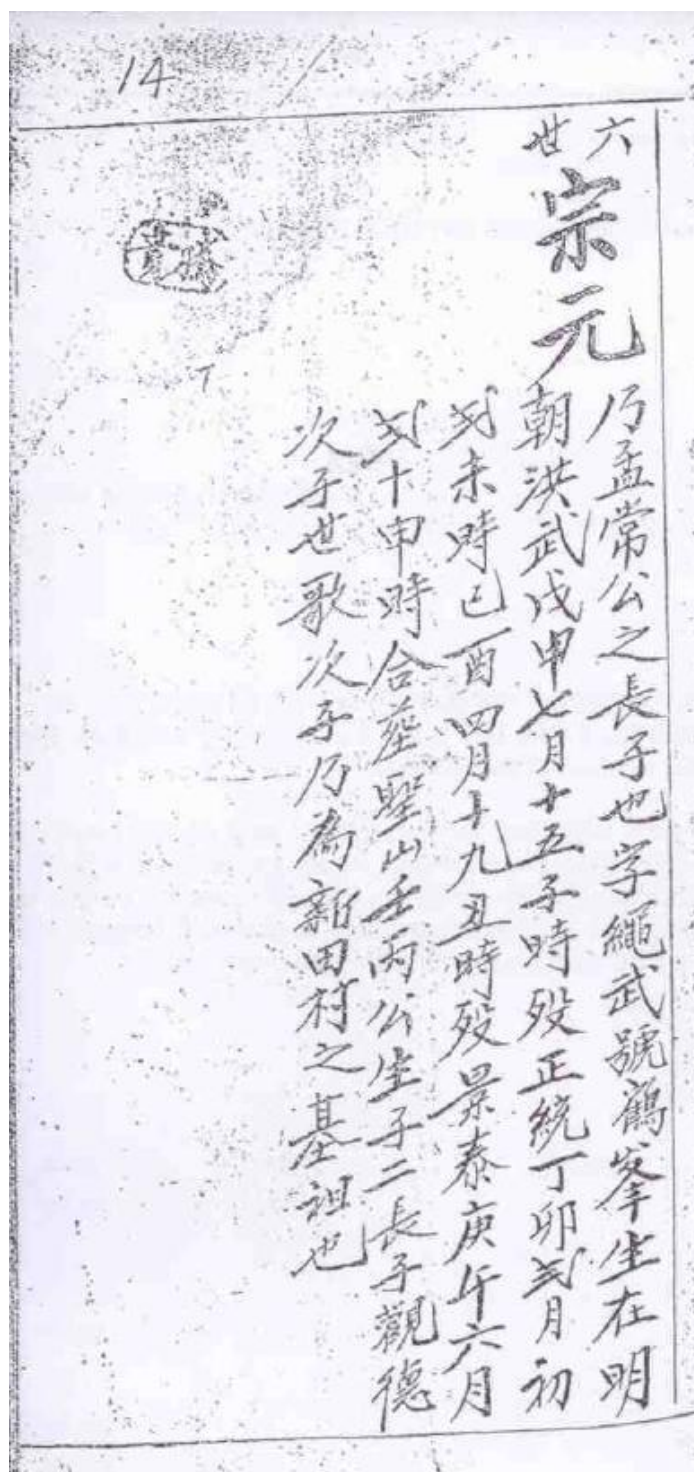 14
六世
宗元
乃孟常公之長子也字繩武號鶴峯生在明
朝洪武戊申七月十五子時歿正統丁卯弍月初
弍未時己酉四月十九丑時歿景泰庚午六月
弍十申時合葬墅山壬丙公生子二長子觀德
次子世歌次子乃為新田村之基祖也